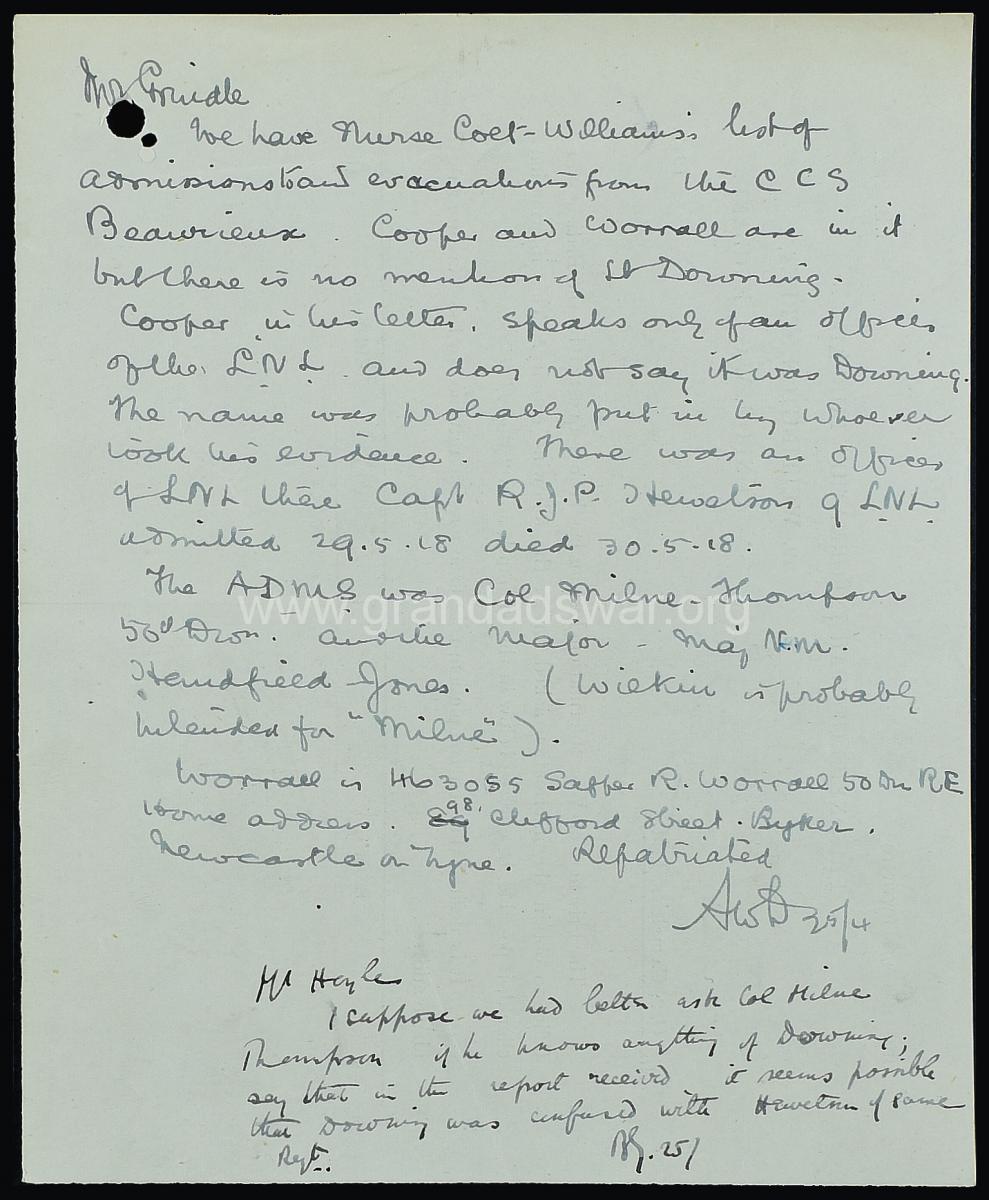 Mr Grindle
We have Nurse Colt-Williams's list of
admissions to and evacuations from the C C S
Beaurieux. Cooper and Worrall are in it
but there is no mention of Lt Downing.
Cooper in his letter, speaks only of an officer
of the L.N.L. and does not say it was Downing.
The name was probably put in by whoever
took his evidence. There was an officer
of LNL there Capt R.J.P. Hewetson of L.N.L.
admitted 29.5.18 died 30.5.18.
The ADMS was Col Milne-Thompson
www.grandadswar.org
50th Divn. and the Major - Maj N.M.
Handfield Jones. (Wilkin is probably
intended for "Milne").
Worrall is 463055 Sapper R. Worrall 50 Dn RE
Home address. 98, Clifford Street. Byker.
Newcastle on Tyne. Repatriated
AWD 25/4
Mr Hoyle
I suppose we had better ask Col Milne
Thompson if he knows anything of Downing;
say that in the report received it seems possible
that Downing was confused with Hewetson of same
Regt.. 25/